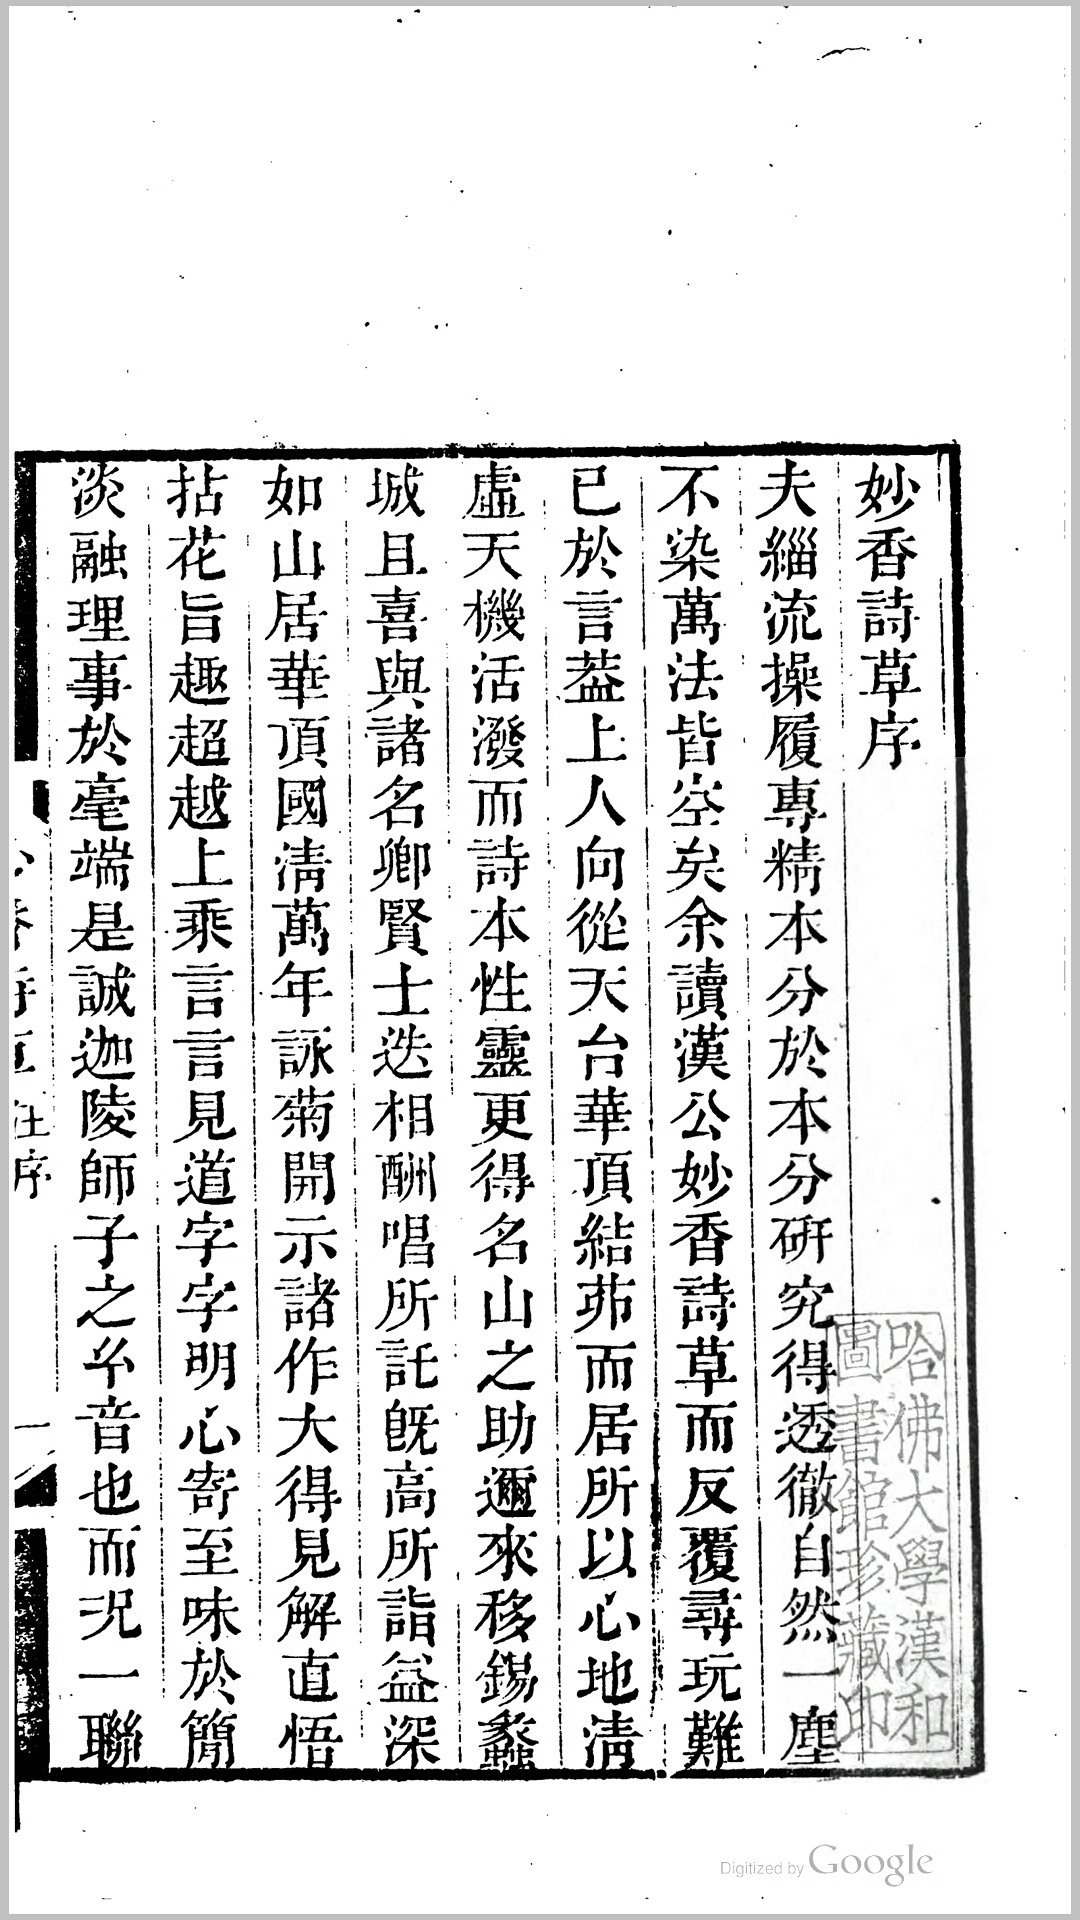 妙香詩草序
夫緇流操履專精本分於本分硏究得透徹自然一塵
不染萬法皆空矣余讀漢公妙香詩草而反覆尋玩難
已於言葢上人向從天台華頂結茆而居所以心地清
虛天機活潑而詩本性靈更得名山之助邇來移錫蠡
城且喜與諸名卿賢士迭相酬唱所託旣高所詣益深
如山居華頂國淸萬年詠菊開示諸作大得見解直悟
拈花旨趣超越上乘言言見道字字明心寄至味於簡
淡融理事於毫端是誠迦陵師子之㕕音也而況一聯
序
一
哈佛大學漢和
圖書館珍藏印
Digitized by Google